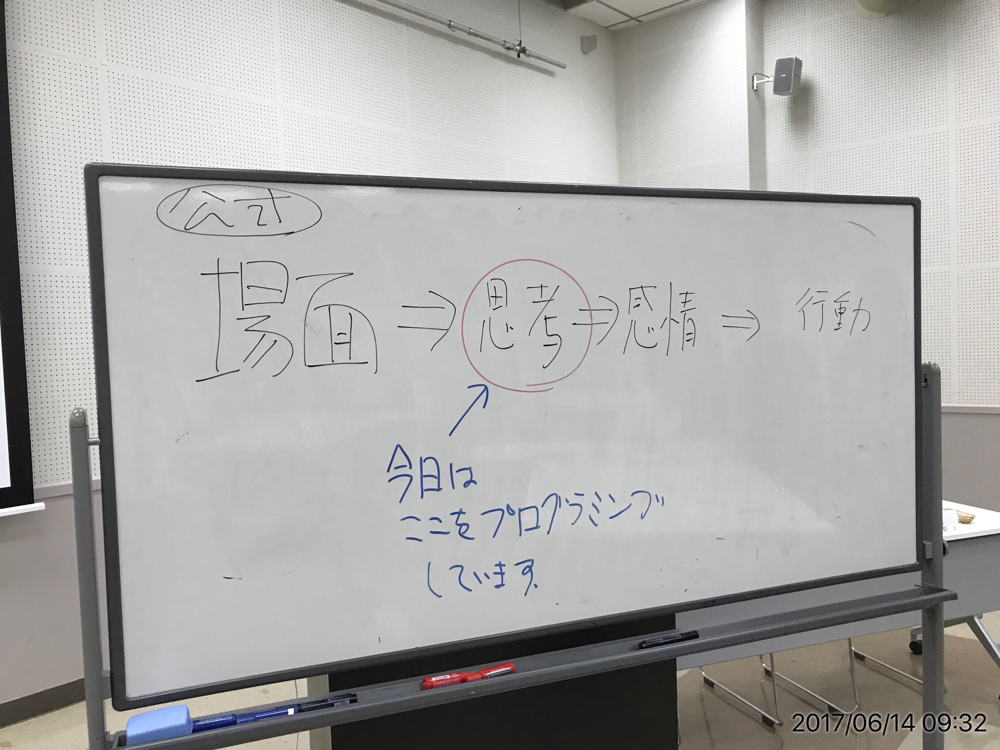 公式
場面⇒思考⇒感情⇒行動
今日は
ここをプログラミング
しています
2017/06/14 09:32